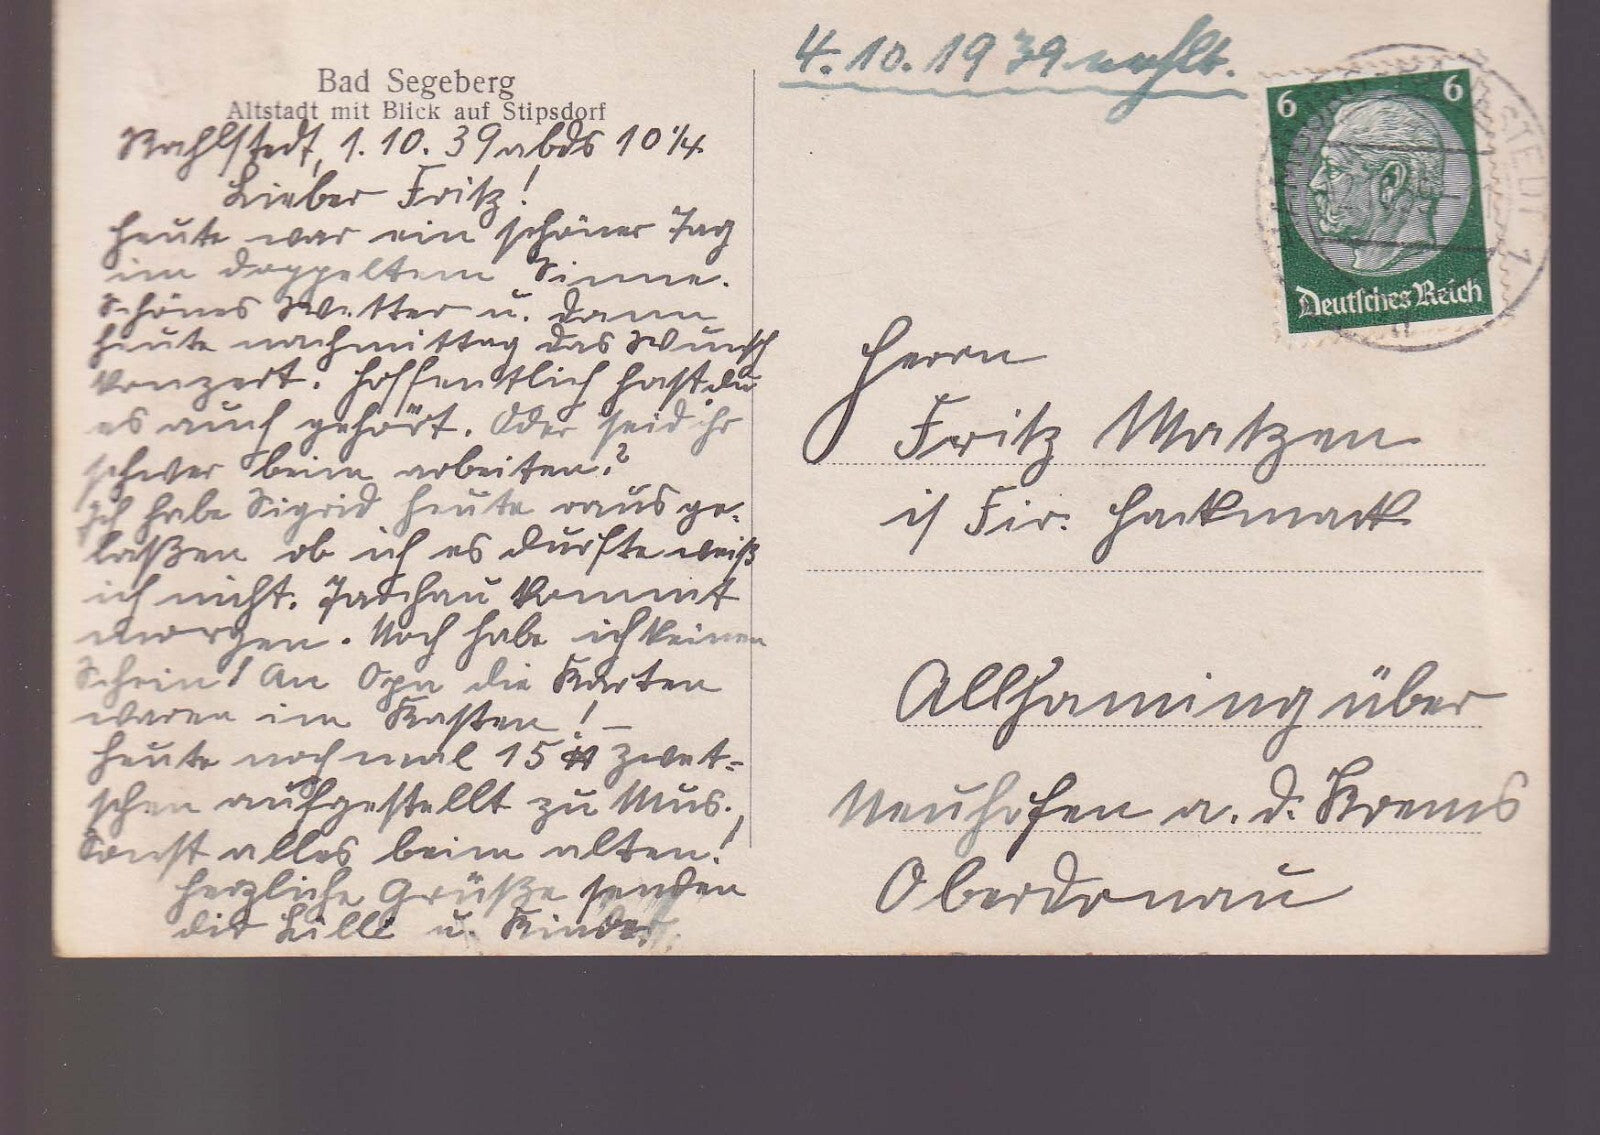 Bad Segeberg
Altstadt mit Blick auf Stipsdorf
Rahlstedt, 1.10.39 abds 10 1/4
Lieber Fritz!
heute war ein schöner Tag
im doppeltem Sinne.
Schönes Wetter u. dann
heute nachmittag das Wunsch
konzert. hoffentlich hast du
es auch gehört. Oder seid ihr
schwer beim arbeiten?
Ich habe Sigrid heute rausge-
laßen ob ich es durfte weiß
ich nicht. kommt
morgen. Noch habe ich keinen
Schein! An Opa die Karten
waren im Kasten! –
heute noch mal 15 ℔ Zwet-
schen aufgestellt zu Mus.
Sonst alles beim alten!
herzliche Grüße senden
dir Lilli u. Kinder.
4.10.1939
6 6
Deutsches Reich
STEDT 1
Herrn
Fritz Matzen
i/ Fir. Hackmack
Allhaming über
Neuhofen a. d. Krems
Oberdonau